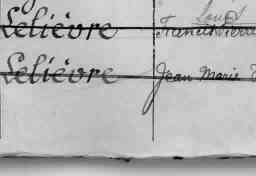 Louis
Lelièvre Francis Pierre
Lelièvre Jean Marie